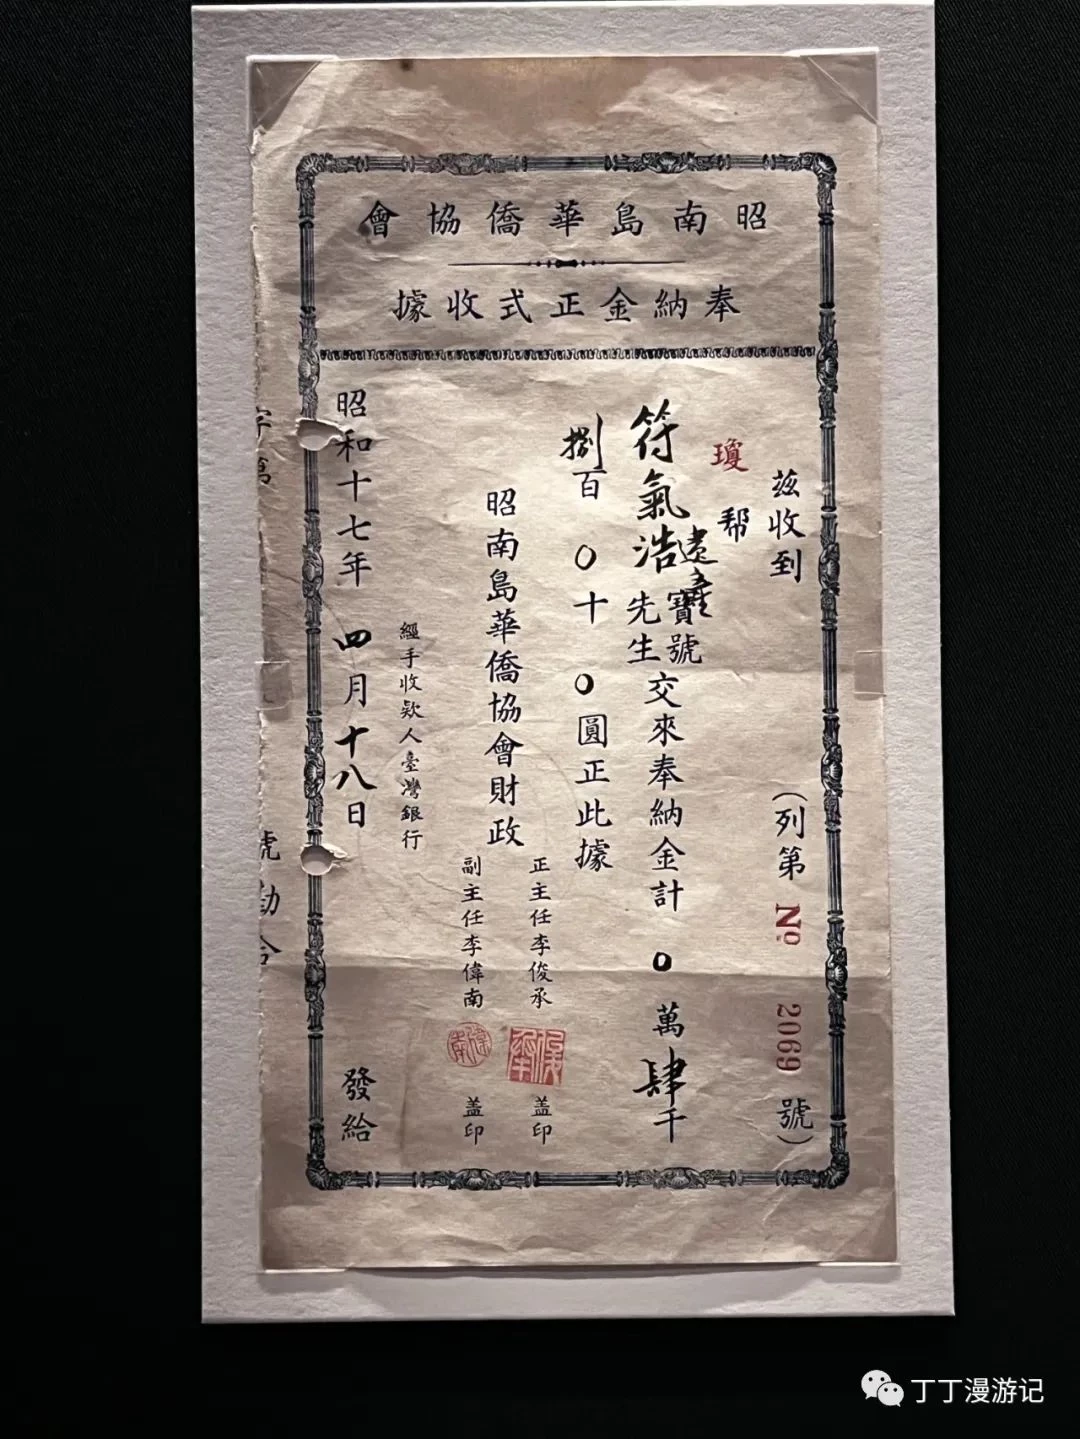 昭南島華僑協會
奉納金正式收據
茲收到
(列第 No 2069 號)
瓊帮
符氣浩遺產 寶號 先生 交來奉納金計 〇萬肆千
捌百〇十〇圓正此據
昭南島華僑協會財政
正主任李俊承 盖印
副主任李偉南 盖印
經手收欵人臺灣銀行
昭和十七年四月十八日 發給
丁丁漫游记